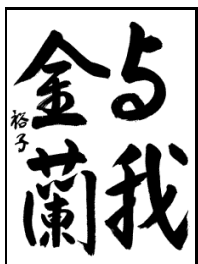 与我
金蘭
裕子